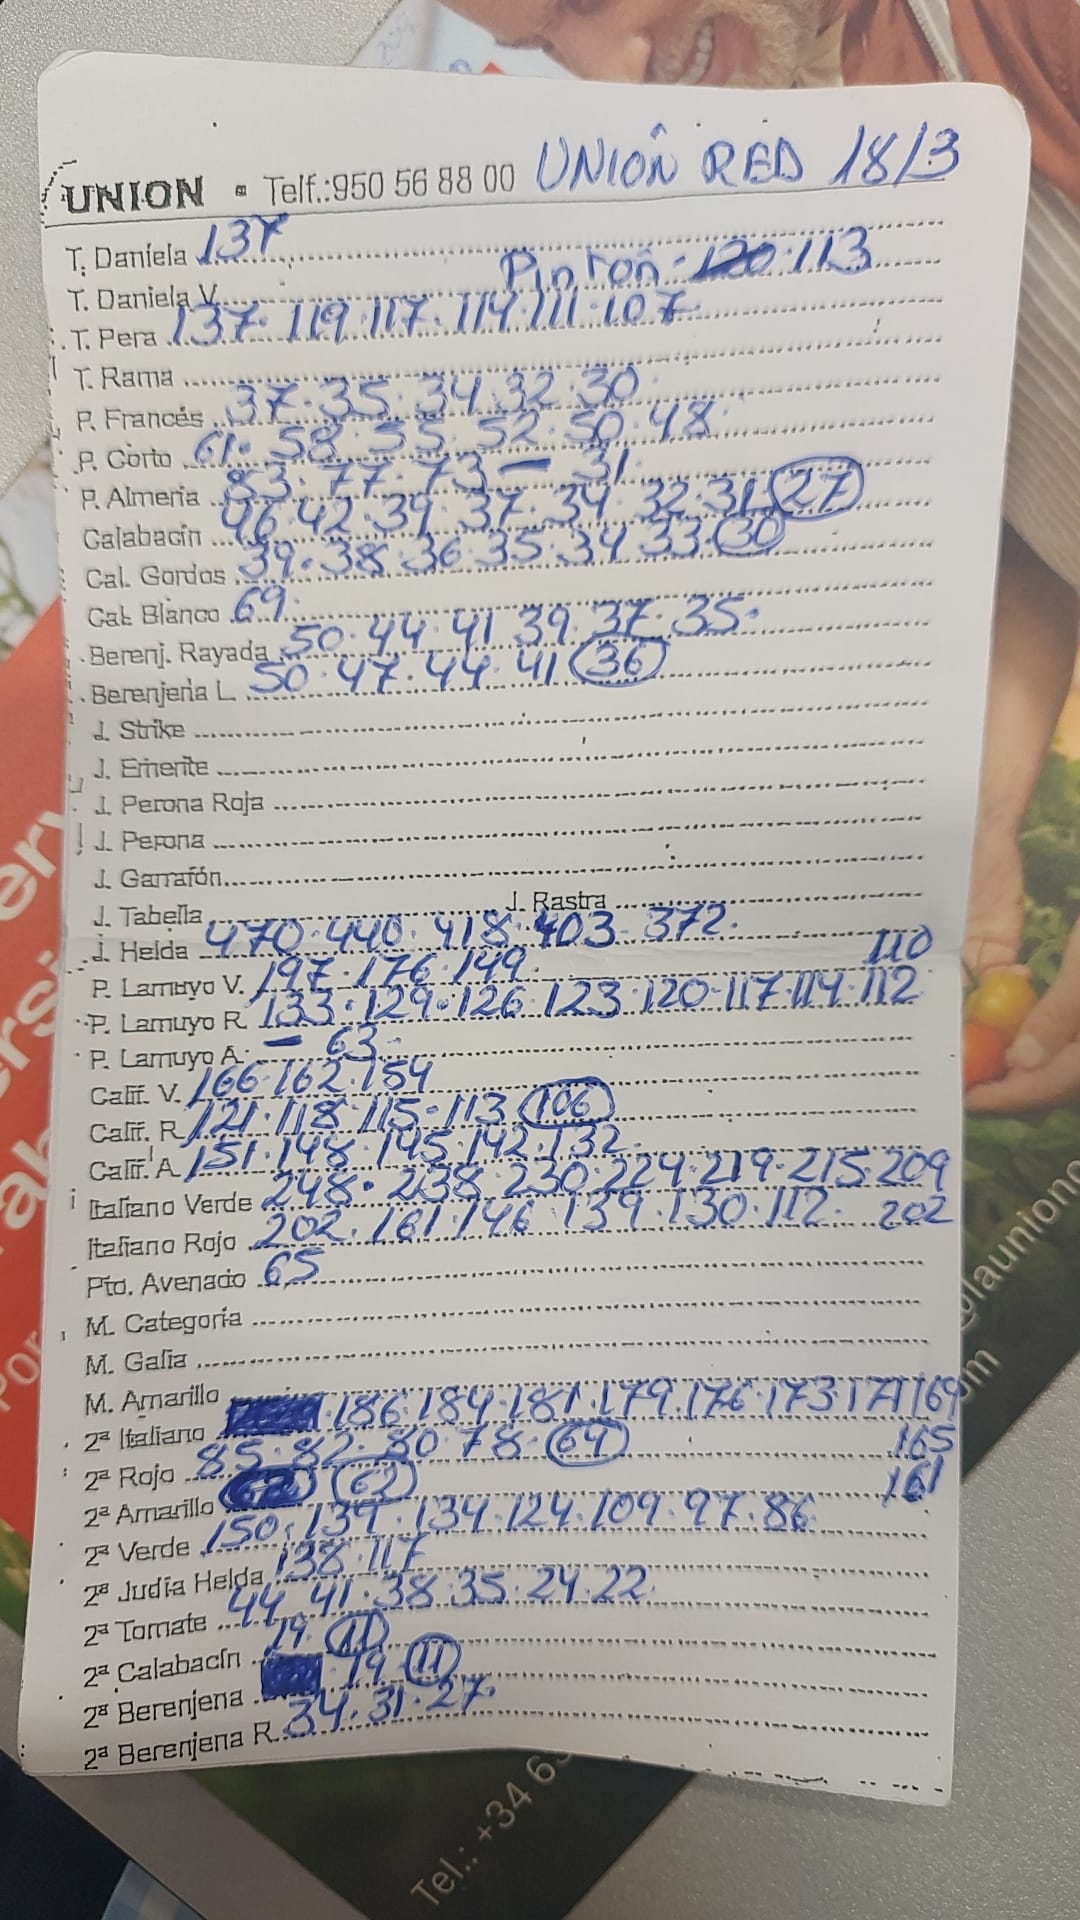 UNION - Telf.:950 56 88 00 UNIÓN RED 18/3
T. Daniela 137
T. Daniela V. Pinton - 113
T. Pera 137. 119. 117. 114. 111. 107
T. Rama
P. Francés 37. 35. 34. 32. 30.
P. Corto 61. 58. 55. 52. 50. 48
P. Almería 83. 77. 73 - 31.
Calabacín 46. 42. 39. 37. 34. 32. 31. 27
Cal. Gordos 39. 38. 36. 35. 34 33. 30
Cal. Blanco 69.
Berenj. Rayada 50. 44. 41 39. 37. 35.
Berenjena L. 50. 47. 44. 41 36
J. Strike
J. Emerite
J. Perona Roja
J. Perona
J. Garrafón
J. Tabella J. Rastra
J. Helda 470. 440. 418. 403. 372.
P. Lamuyo V. 197. 176. 149. 110
P. Lamuyo R. 133. 129. 126. 123. 120. 117. 114. 112
P. Lamuyo A. - 63.
Calif. V. 166. 162. 154
Calif. R. 121. 118. 115. 113 106
Calif. A. 151. 148. 145. 142. 132.
Italiano Verde 248. 238. 230. 224. 219. 215. 209
Italiano Rojo 202. 161. 146. 139. 130. 112. 202
Pto. Avenado 65
M. Categoría
M. Galia
M. Amarillo
2ª Italiano 186. 184. 181. 179. 176. 173. 171 169
2ª Rojo 85. 82. 80. 78. 64 165
2ª Amarillo 62 161
2ª Verde 150. 139. 134. 124. 109. 97. 86
2ª Judía Helda 138. 117
2ª Tomate 44 41. 38. 35. 24. 22.
2ª Calabacín 19. 11
2ª Berenjena 19. 11
2ª Berenjena R. 34. 31. 27.
Tel.: +34 6